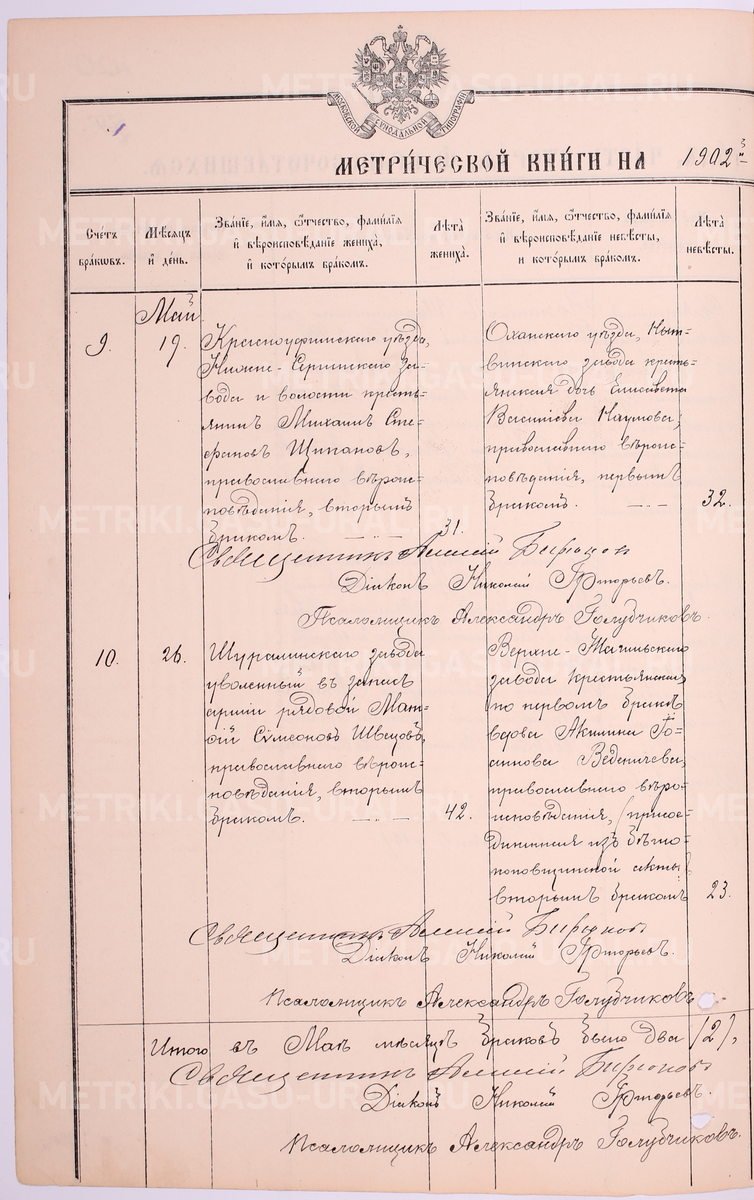 МОСКОВСКОЙ СѴНОДАЛЬНОЙ ТИПОГРАФІИ
МЕТРИЧЕСКОЙ КНИГИ НА 1902й
Счетъ браквъ.
Мѣсяцъ и день.
Званїе, имя, ѿчество, фамилїя
и вѣроисповѣданїе жениха,
и которымъ бракомъ.
Лѣта
жениха.
Званїе, имя, ѿчество, фамилїя
и вѣроисповѣданїе невѣсты,
и которымъ бракомъ.
Лѣта
невѣсты.
Май
9. 19.
Красноуфимскаго уѣзда,
Нижне-Сергинскаго за-
вода и волости кресть-
янинъ Михаилъ Сте-
фановъ Щипановъ,
православнаго вѣроис-
повѣданія, вторымъ
бракомъ. 31.
Оханскаго уѣзда, Ныт-
винскаго завода кресть-
янская дочь Елисавета
Васильева Наумова,
православнаго вѣроис-
повѣданія, первымъ
бракомъ. 32.
Священникъ
Діаконъ Николай Григорьевъ.
Псаломщикъ Александръ Голубчиковъ.
10. 26.
Шуралинскаго завода
уволенный въ запасъ
арміи рядовой Мат-
ѳій Сѵмеоновъ Швецовъ,
православнаго вѣроис-
повѣданія, вторымъ
бракомъ. 42.
Верхне-Тагильскаго
завода крестьянская
по первомъ бракѣ
вдова Акилина
Веденичева,
православнаго вѣро-
исповѣданія, (присое-
диненная изъ бѣгло-
поповщинской секты)
вторымъ бракомъ 23.
Священникъ
Діаконъ Николай Григорьевъ.
Псаломщикъ Александръ Голубчиковъ.
Итого въ Маѣ мѣсяцѣ браковъ было два (2),
Священникъ
Діаконъ Николай Григорьевъ.
Псаломщикъ Александръ Голубчиковъ.
METRIKI.GASO-URAL.RU